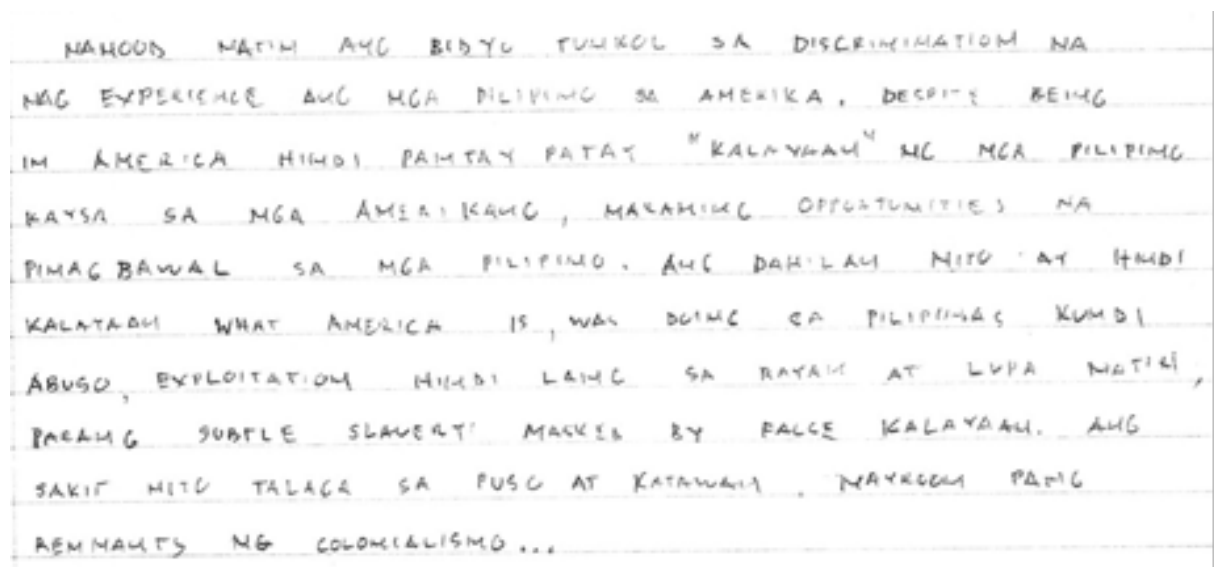 NANOOD NATIN ANG BIDYO TUNKOL SA DISCRIMINATION NA
NAG EXPERIENCE ANG MGA PILIPINO SA AMERIKA. DESPITE BEING
IN AMERICA HINDI PANTAY PATAY "KALAYAAN" NG MGA PILIPINO
KAYSA SA MGA AMERIKANO, MARAMING OPPORTUNITIES NA
PINAGBAWAL SA MGA PILIPINO. ANG DAHILAN NITO AY HINDI
KALAYAAN WHAT AMERICA IS, WAS DOING SA PILIPINAS KUNDI
ABUSO, EXPLOITATION HINDI LANG SA BAYAN AT LUPA NATIN,
PARANG SUBTLE SLAVERY MASKED BY FALSE KALAYAAN. ANG
SAKIT NITO TALAGA SA PUSO AT KATAWAN. MAYROON PANG
REMNANTS NG COLONIALISMO...